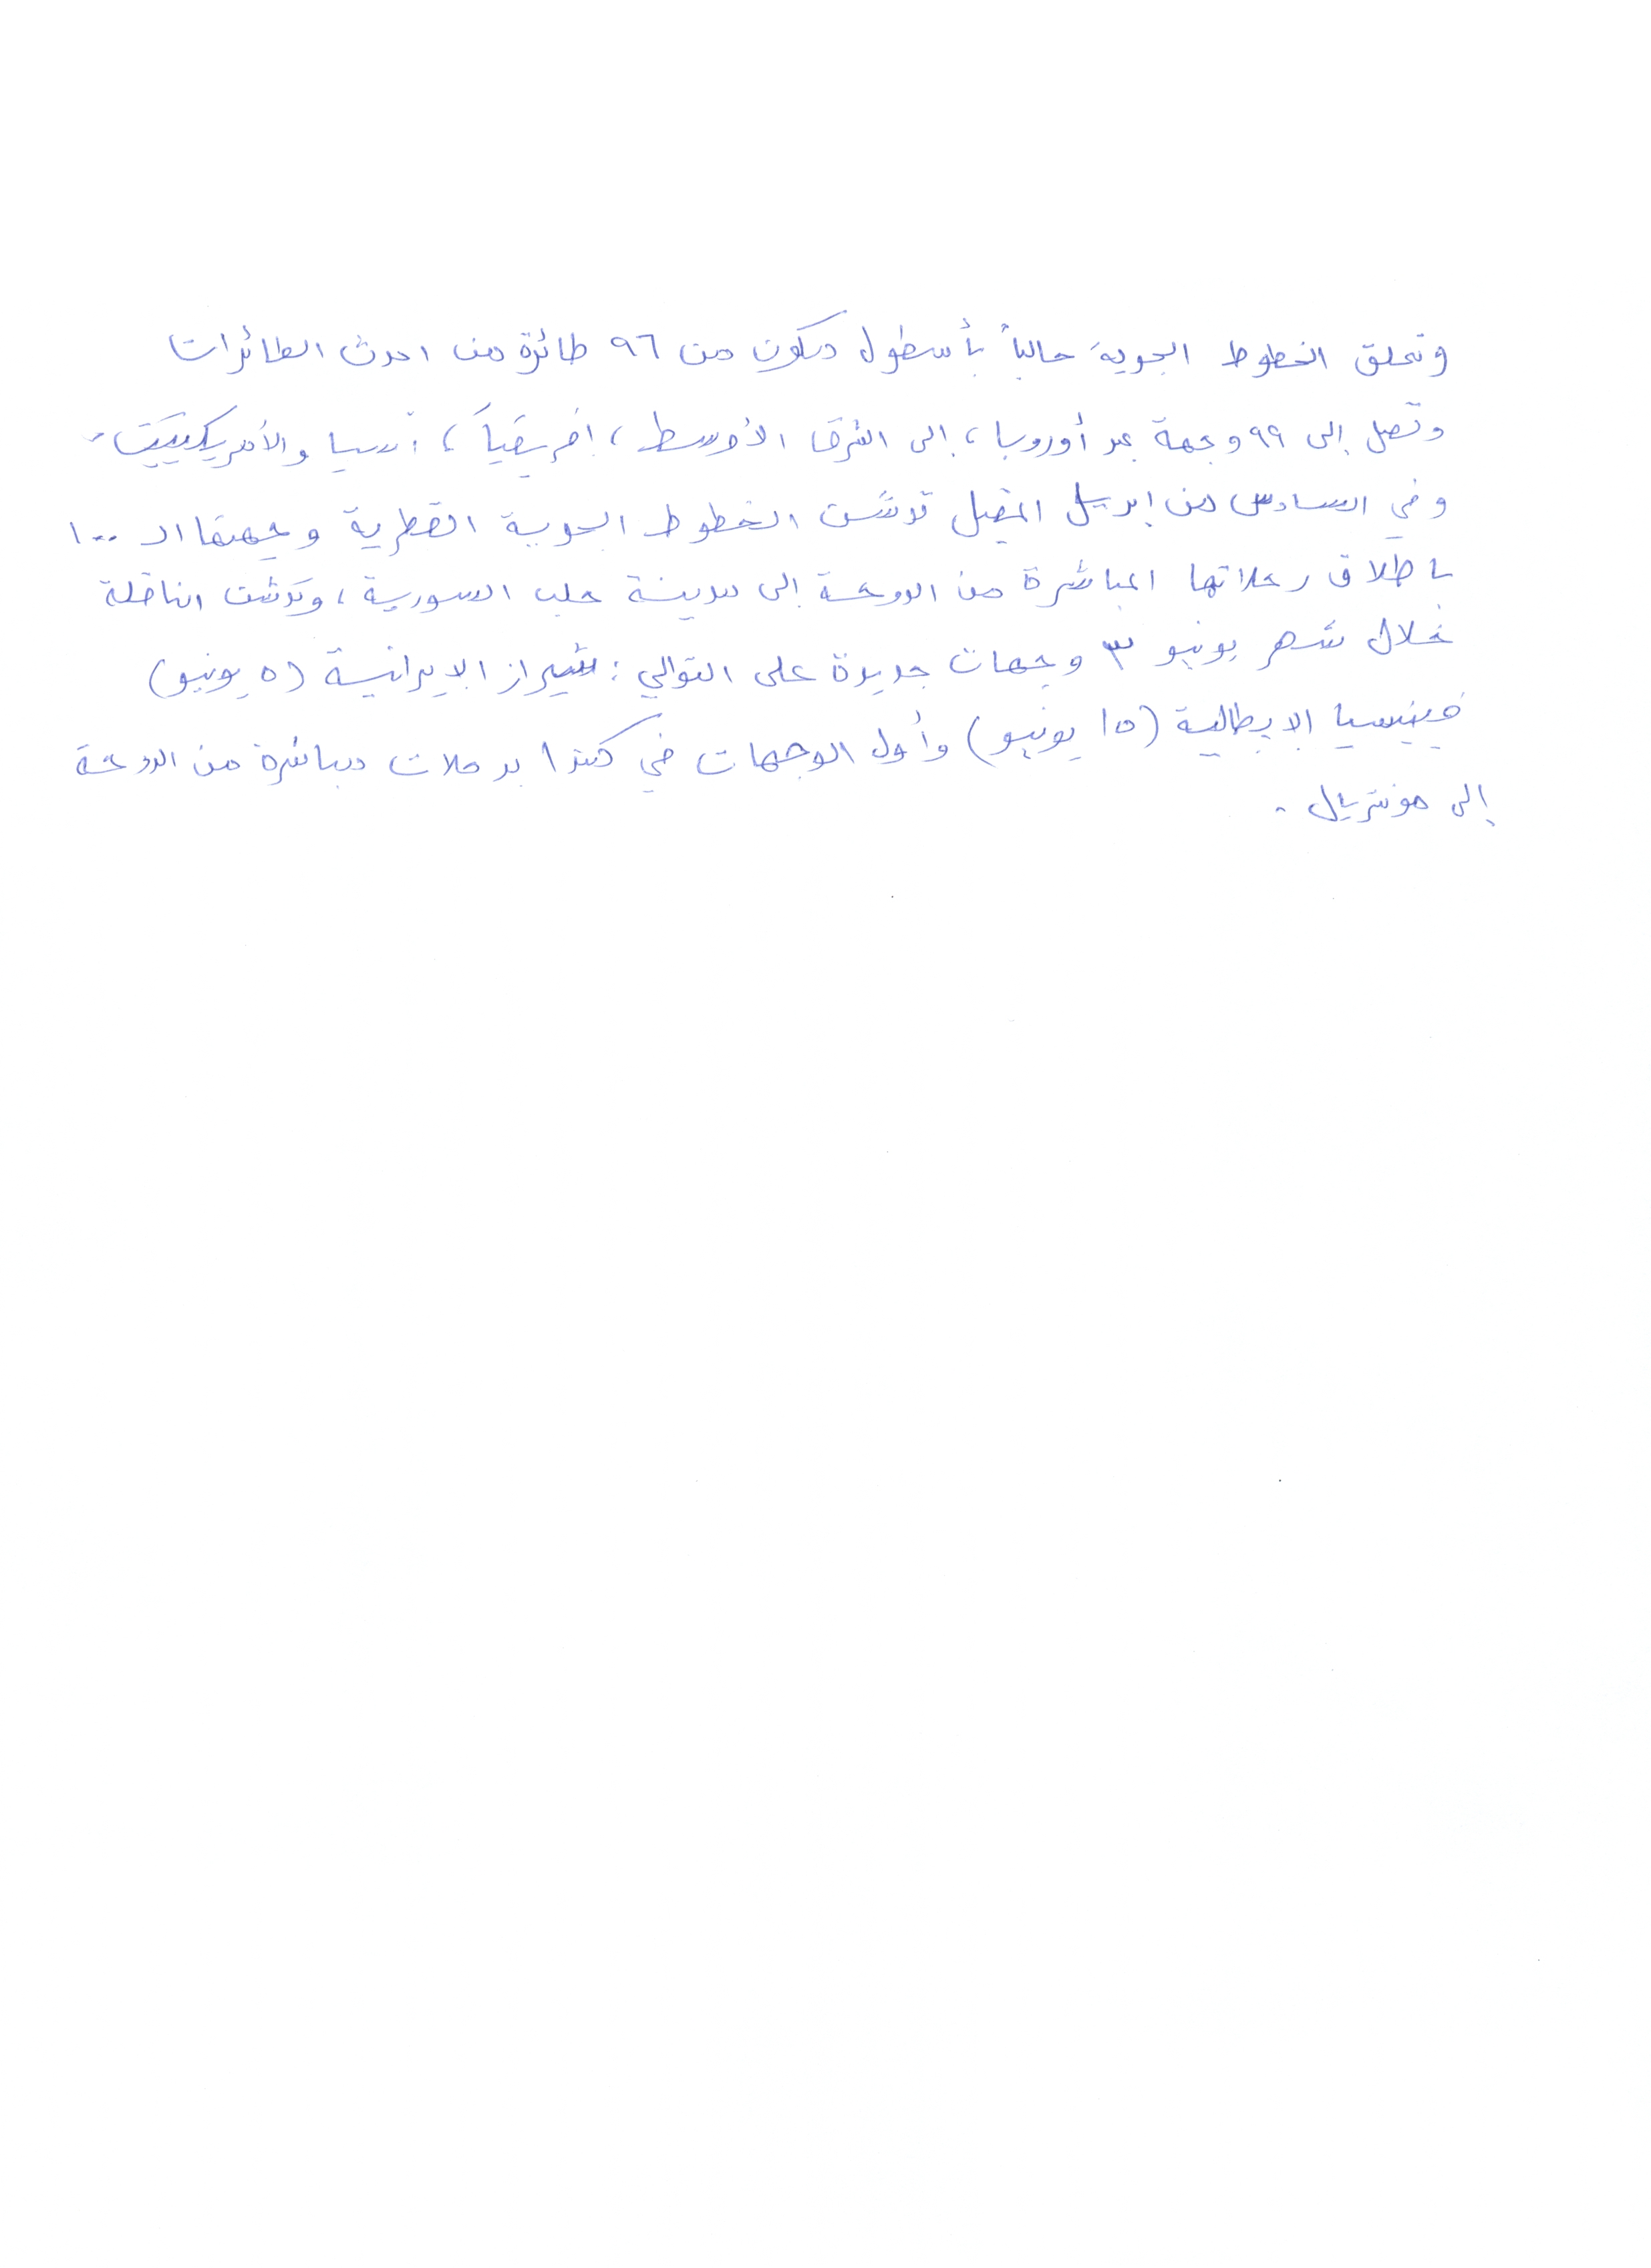 وتحلق الخطوط الجوية حالياً بأسطول مكون من ٩٦ طائرة من احدث الطائرات
وتصل إلى ٩٩ وجهة عبر أوروبا، إلى الشرق الأوسط، إفريقيا، آسيا والأمريكيتين.
وفي السادس من إبريل المقبل تدشن الخطوط الجوية القطرية وجهتها الـ ١٠٠
بإطلاق رحلاتها المباشرة من الدوحة إلى مدينة حلب السورية، وتدشن الناقلة
خلال شهر يونيو ٣ وجهات جديدة على التوالي: شيراز الايرانية (٥ يونيو)
فينيسيا الإيطالية (١٥ يونيو) وأول الوجهات في كندا برحلات مباشرة من الدوحة
إلى مونتريال.